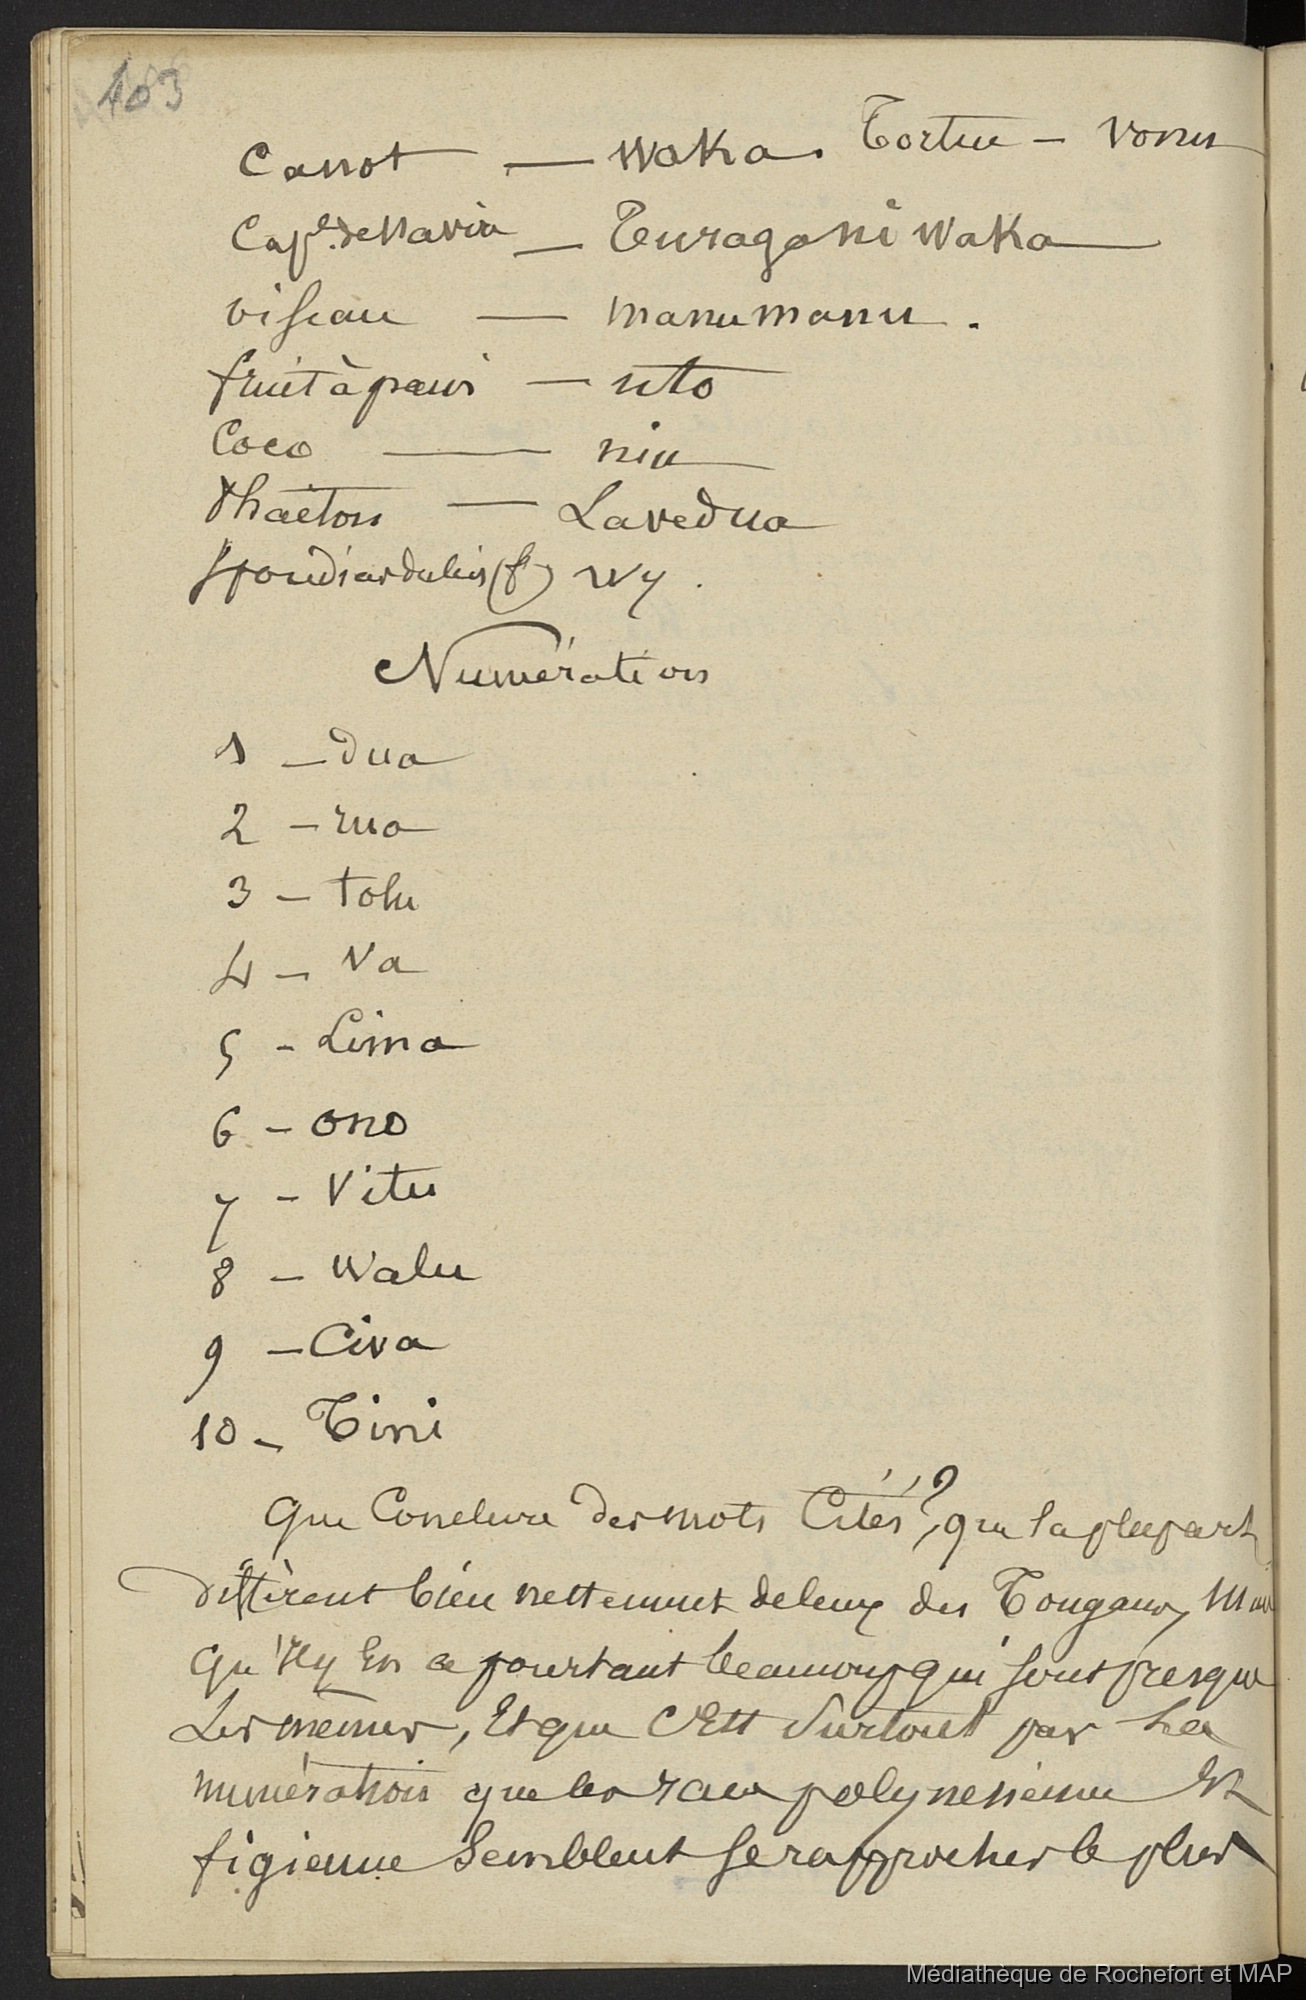 103
Canot — Waka. Tortue — Vonu
Cap.e de Navire — Turaga ni Waka
oiseau — manumanu.
fruit à pain — uto
Coco — niu
Phaëton — Lavedua
Spondias dulcis (f) Wy.
Numération
1 — dua
2 — rua
3 — tolu
4 — Va
5 - Lima
6 — ono
7 — Vitu
8 — Walu
9 — Civa
10 — Tini
Que Conclure des mots Cités?, que la plupart
diffèrent bien nettement de ceux des Tongans, Mais
qu'il y En a pourtant beaucoup qui sont presque
Les mêmes, Et que C'Est Surtout par La
numération que les races polynésienne Et
figienne Semblent Se rapprocher le plus
Médiathèque de Rochefort et MAP